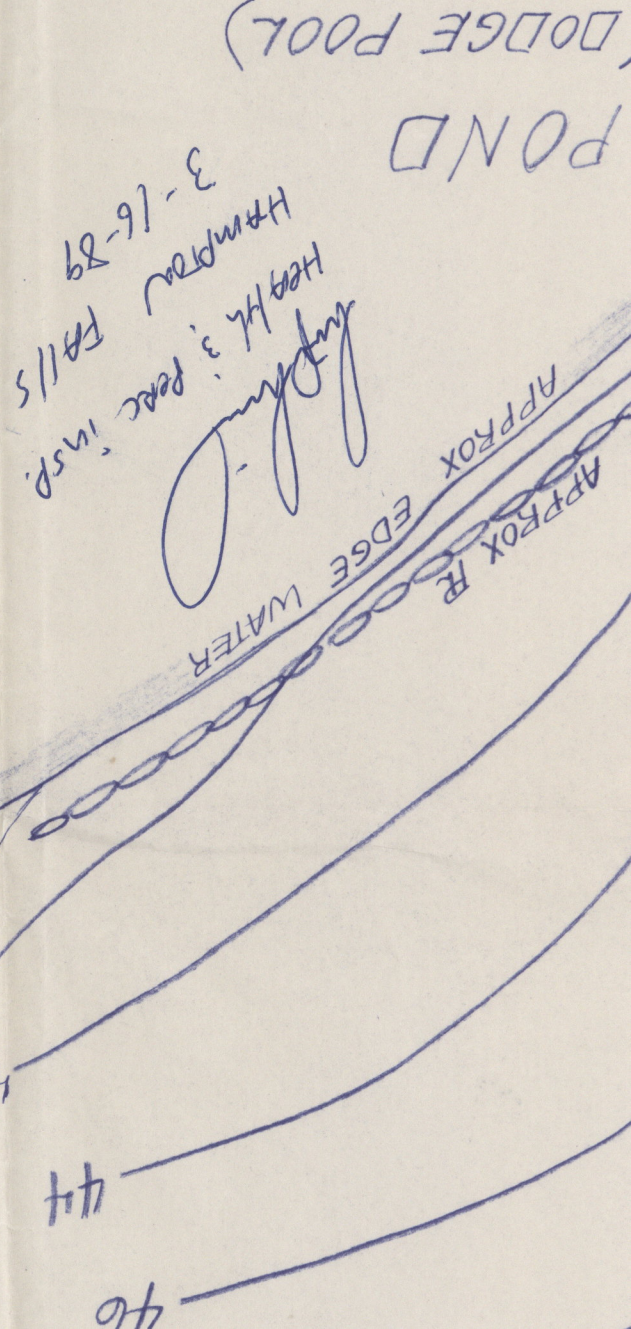 46
44
APPROX PL
APPROX EDGE WATER
Health & Perc insp.
HAMPTON FALLS
3-16-89
POND
(DODGE POOL)